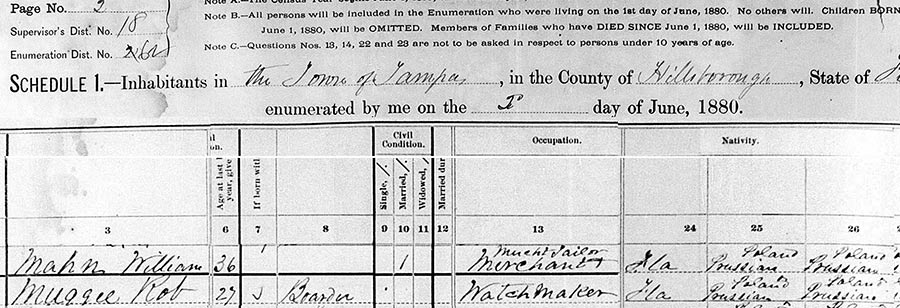 Page No. 2
Note B.—All persons will be included in the Enumeration who were living on the 1st day of June, 1880. No others will. Children BORN
Supervisor's Dist. No. 18
June 1, 1880, will be OMITTED. Members of Families who have DIED SINCE June 1, 1880, will be INCLUDED.
Enumeration Dist. No.
Note C.—Questions Nos. 13, 14, 22 and 23 are not to be asked in respect to persons under 10 years of age.
SCHEDULE 1.—Inhabitants in the Town of Tampa, in the County of Hillsborough, State of
enumerated by me on the day of June, 1880.
Civil Condition. Occupation. Nativity.
Age at last year, give If born with Single, /. Married, /. Widowed, /. Married dur
3 6 7 8 9 10 11 12 13 24 25 26
Mercht Tailor Poland Poland
Mahn William 36 1 Merchant Fla Prussian Prussian
Poland Poland
Muggee Rob 27 Boarder Watchmaker Fla Prussian Prussian